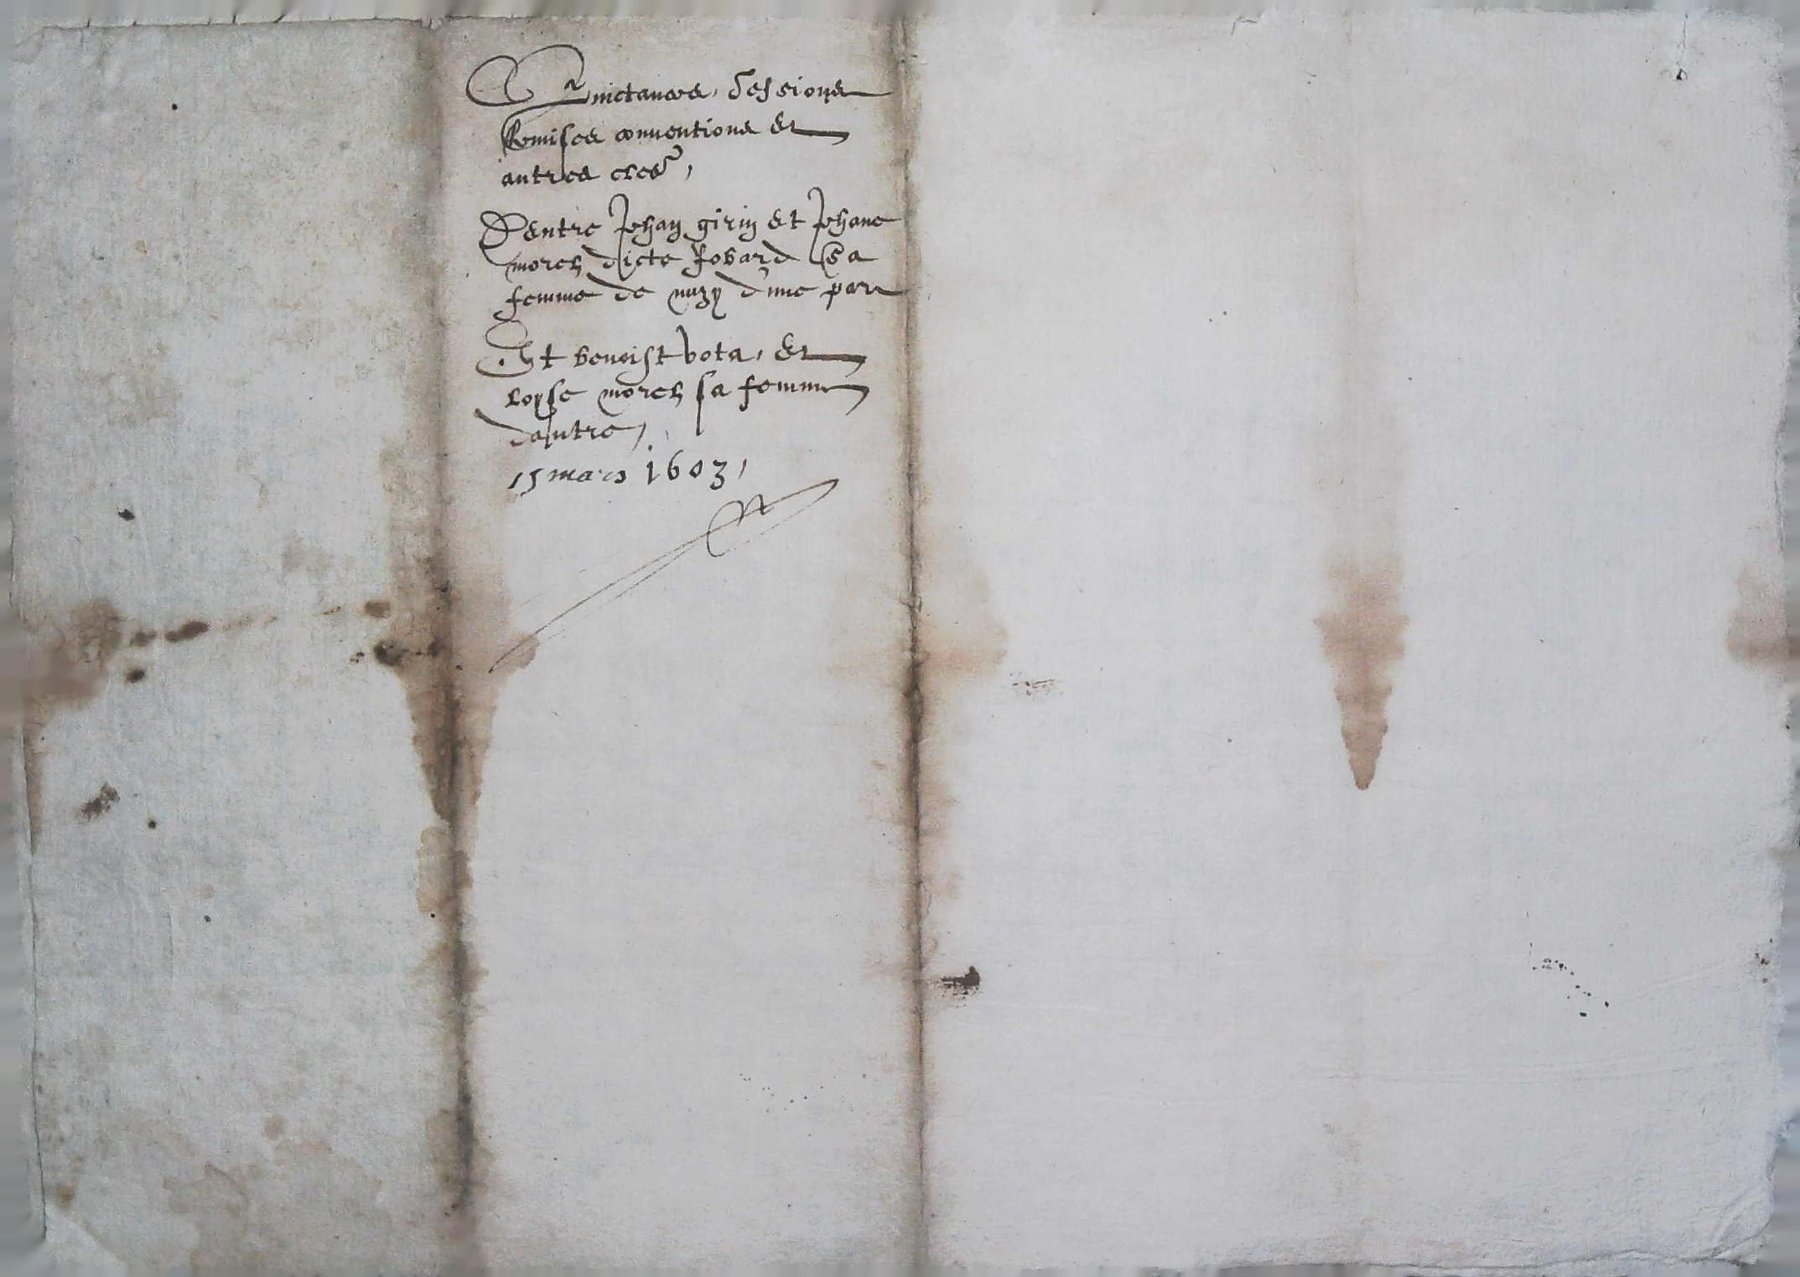 Quictances, Cessions
Remises conventions et
autres
Dentre Jehan girin et Jehane
morel dicte Jobard sa
femme de nuzy d'une part
Et benoist vota, et
loyse morel sa femme
dautre,
15 mars 1603,